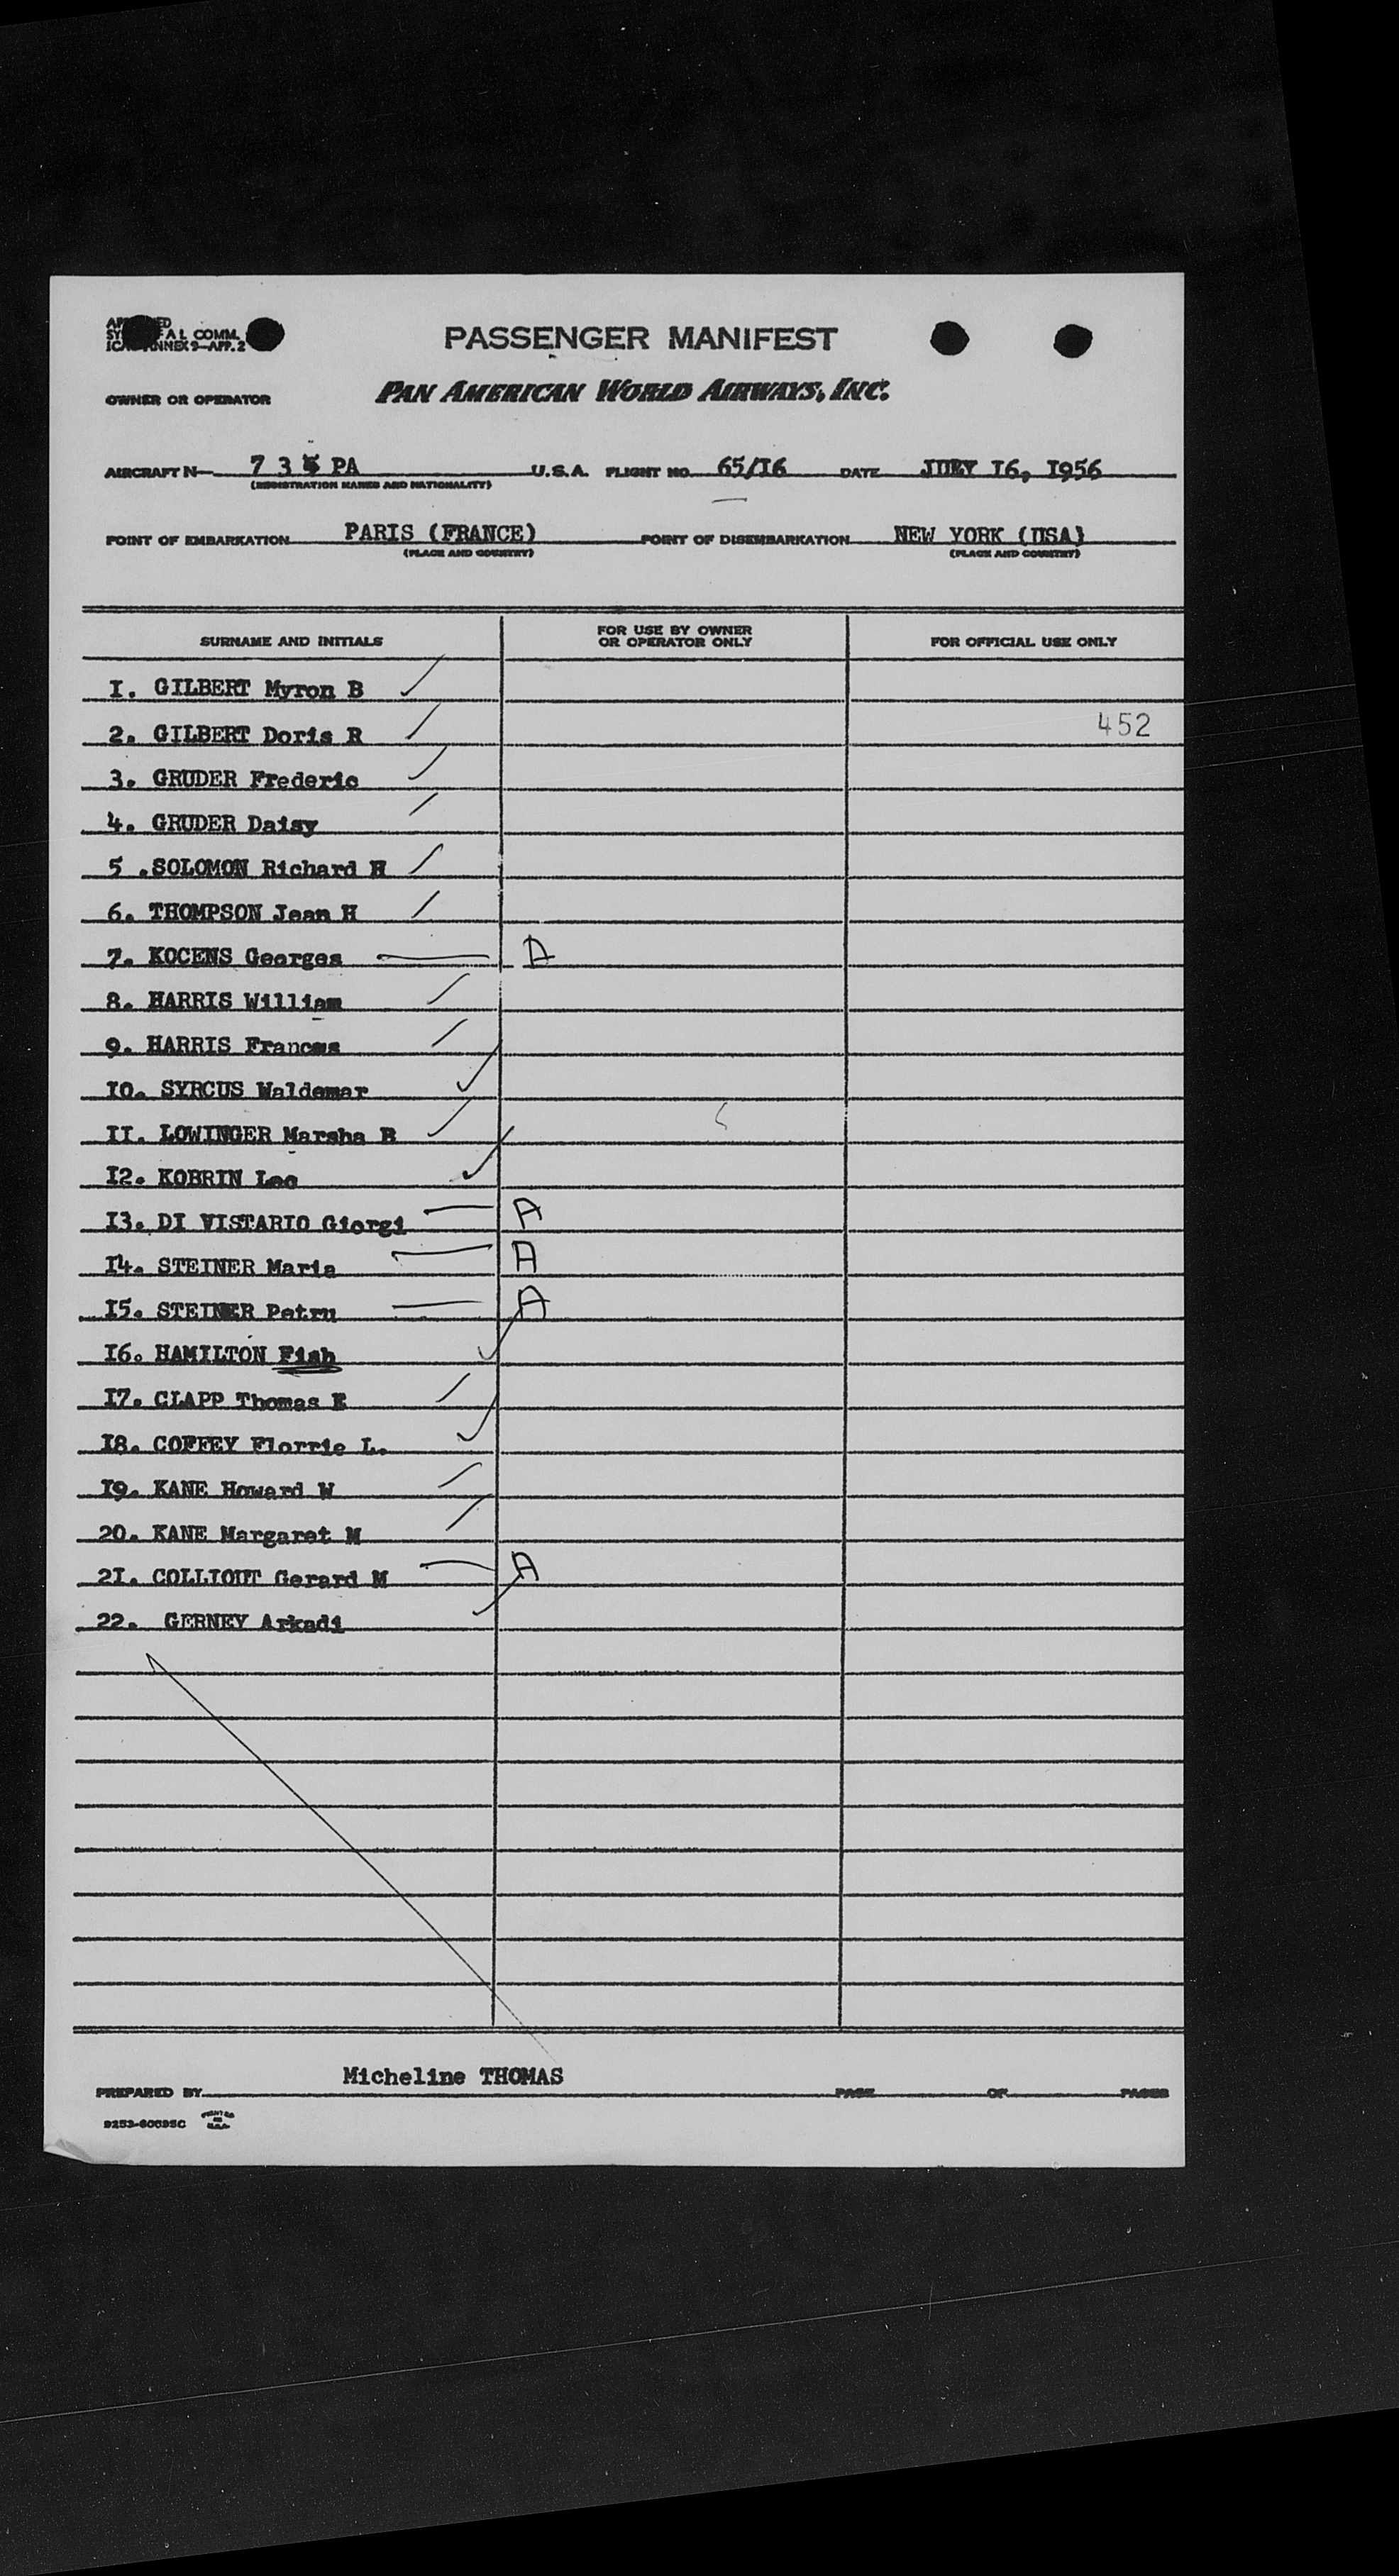 PASSENGER MANIFEST
AL COMM.
ANNEX 9—APP. 2
OWNER OR OPERATOR PAN AMERICAN WORLD AIRWAYS, INC.
AIRCRAFT N— 7 3 PA U.S.A. FLIGHT NO. 65/I6 DATE JULY I6, I956
(REGISTRATION MARKS AND NATIONALITY)
POINT OF EMBARKATION PARIS (FRANCE) POINT OF DISEMBARKATION NEW YORK (USA)
(PLACE AND COUNTRY) (PLACE AND COUNTRY)
SURNAME AND INITIALS FOR USE BY OWNER OR OPERATOR ONLY FOR OFFICIAL USE ONLY
I. GILBERT Myron B
2. GILBERT Doris R 452
3. GRUDER Frederic
4. GRUDER Daisy
5 .SOLOMON Richard H
6. THOMPSON Jean H
7. KOCENS Georges A
8. HARRIS William
9. HARRIS Frances
I0. SYRCUS Waldemar
II. LOWINGER Marsha B
I2. KOBRIN Leo
I3. DI VISTARIO Giorgi A
I4. STEINER Maria A
I5. STEINER Petru A
I6. HAMILTON Fish
I7. CLAPP Thomas E
I8. COFFEY Florrie L.
I9. KANE Howard W
20. KANE Margaret M
2I. COLLIOUT Gerard M A
22. GERNEY Arkadi
Micheline THOMAS
PREPARED BY PAGE OF PAGES
PRINTED IN U.S.A.